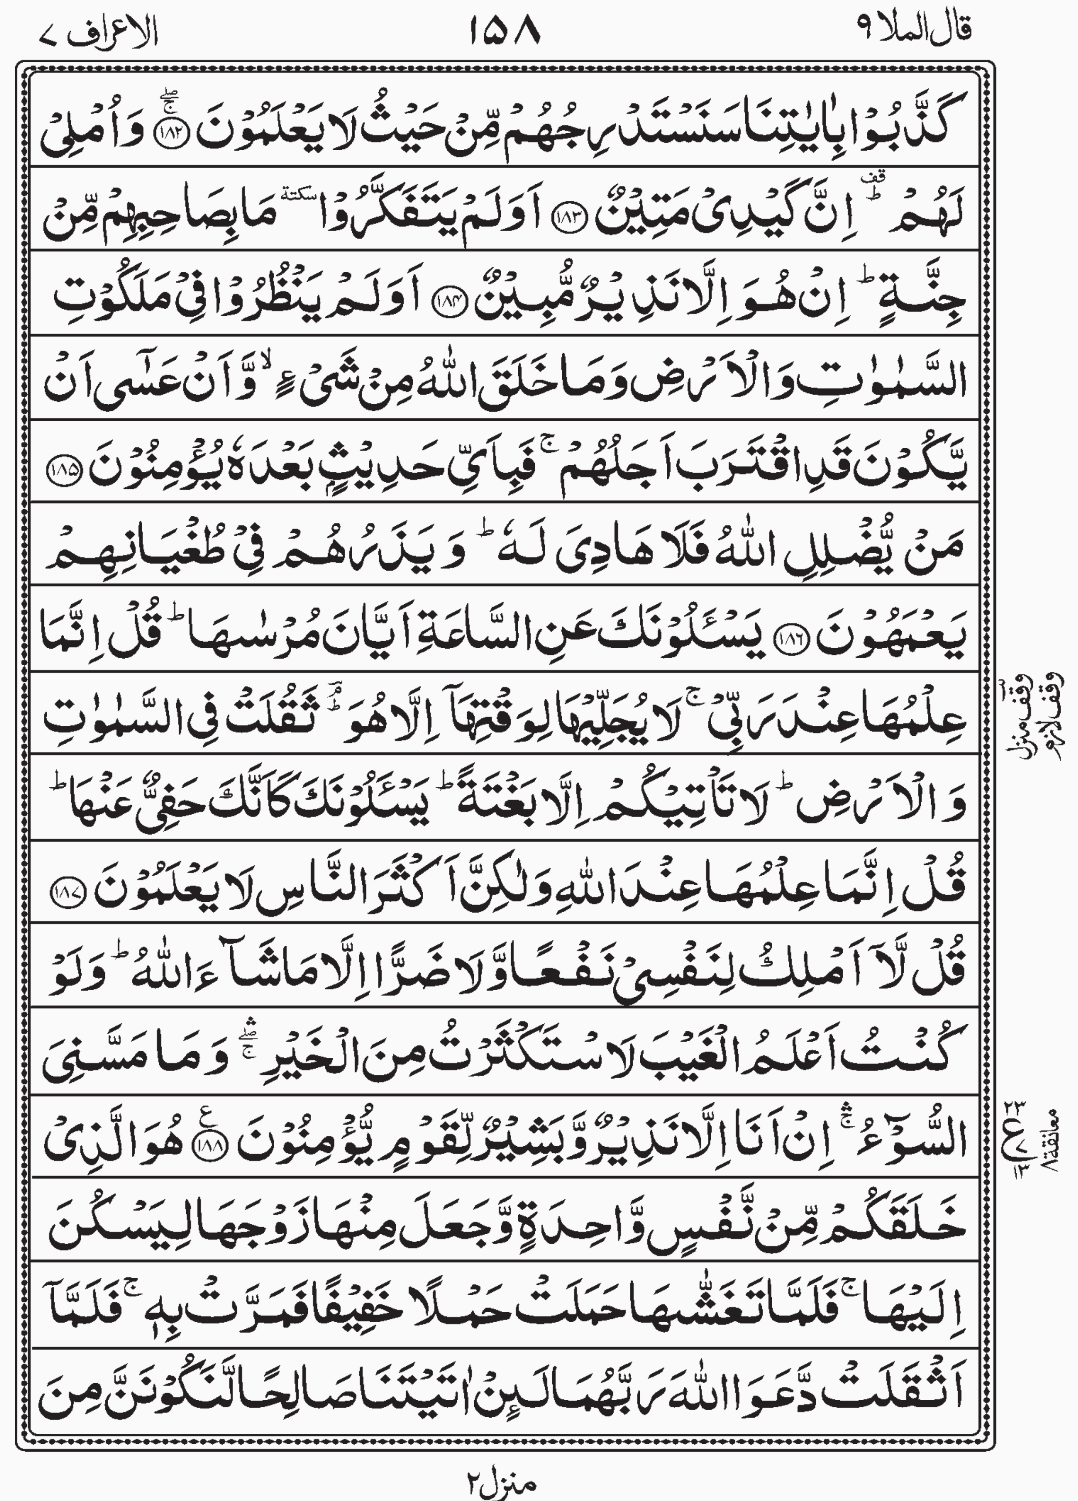 قال الملا ۹
۱۵۸
الاعراف ۷
كَذَّبُوْا بِاٰيٰتِنَا سَنَسْتَدْرِجُهُمْ مِّنْ حَيْثُ لَا يَعْلَمُوْنَ ۱۸۲ۚۖ وَاُمْلِىْ
لَهُمْ ؕقف اِنَّ كَيْدِىْ مَتِيْنٌ ۱۸۳ اَوَلَمْ يَتَفَكَّرُوْا سكتة مَا بِصَاحِبِهِمْ مِّنْ
جِنَّةٍ ؕ اِنْ هُوَ اِلَّا نَذِيْرٌ مُّبِيْنٌ ۱۸۴ اَوَلَمْ يَنْظُرُوْا فِىْ مَلَكُوْتِ
السَّمٰوٰتِ وَالْاَرْضِ وَمَا خَلَقَ اللّٰهُ مِنْ شَىْءٍ ۙ وَّاَنْ عَسٰٓى اَنْ
يَّكُوْنَ قَدِ اقْتَرَبَ اَجَلُهُمْ ۚ فَبِاَىِّ حَدِيْثٍۭ بَعْدَهٗ يُؤْمِنُوْنَ ۱۸۵
مَنْ يُّضْلِلِ اللّٰهُ فَلَا هَادِىَ لَهٗ ؕ وَيَذَرُهُمْ فِىْ طُغْيَانِهِمْ
يَعْمَهُوْنَ ۱۸۶ يَسْـَٔلُوْنَكَ عَنِ السَّاعَةِ اَيَّانَ مُرْسٰىهَا ؕ قُلْ اِنَّمَا
عِلْمُهَا عِنْدَ رَبِّىْ ۚ لَا يُجَلِّيْهَا لِوَقْتِهَاۤ اِلَّا هُوَ ؕۘ ثَقُلَتْ فِى السَّمٰوٰتِ
وَالْاَرْضِ ؕ لَا تَاْتِيْكُمْ اِلَّا بَغْتَةً ؕ يَسْـَٔلُوْنَكَ كَاَنَّكَ حَفِىٌّ عَنْهَا ؕ
قُلْ اِنَّمَا عِلْمُهَا عِنْدَ اللّٰهِ وَلٰكِنَّ اَكْثَرَ النَّاسِ لَا يَعْلَمُوْنَ ۱۸۷
قُلْ لَّاۤ اَمْلِكُ لِنَفْسِىْ نَفْعًا وَّلَا ضَرًّا اِلَّا مَا شَآءَ اللّٰهُ ؕ وَلَوْ
كُنْتُ اَعْلَمُ الْغَيْبَ لَاسْتَكْثَرْتُ مِنَ الْخَيْرِ ۛۚۖ وَمَا مَسَّنِىَ
السُّوْٓءُ ۛۚ اِنْ اَنَا اِلَّا نَذِيْرٌ وَّبَشِيْرٌ لِّقَوْمٍ يُّؤْمِنُوْنَ ۱۸۸ ع هُوَ الَّذِىْ
خَلَقَكُمْ مِّنْ نَّفْسٍ وَّاحِدَةٍ وَّجَعَلَ مِنْهَا زَوْجَهَا لِيَسْكُنَ
اِلَيْهَا ۚ فَلَمَّا تَغَشّٰىهَا حَمَلَتْ حَمْلًا خَفِيْفًا فَمَرَّتْ بِهٖ ۚ فَلَمَّاۤ
اَثْقَلَتْ دَّعَوَا اللّٰهَ رَبَّهُمَا لَٮِٕنْ اٰتَيْتَنَا صَالِحًا لَّنَكُوْنَنَّ مِنَ
وقف لازم
وقف منزل
معانقة ۸
۲۳
ع
۷
۱۳
منزل ۲